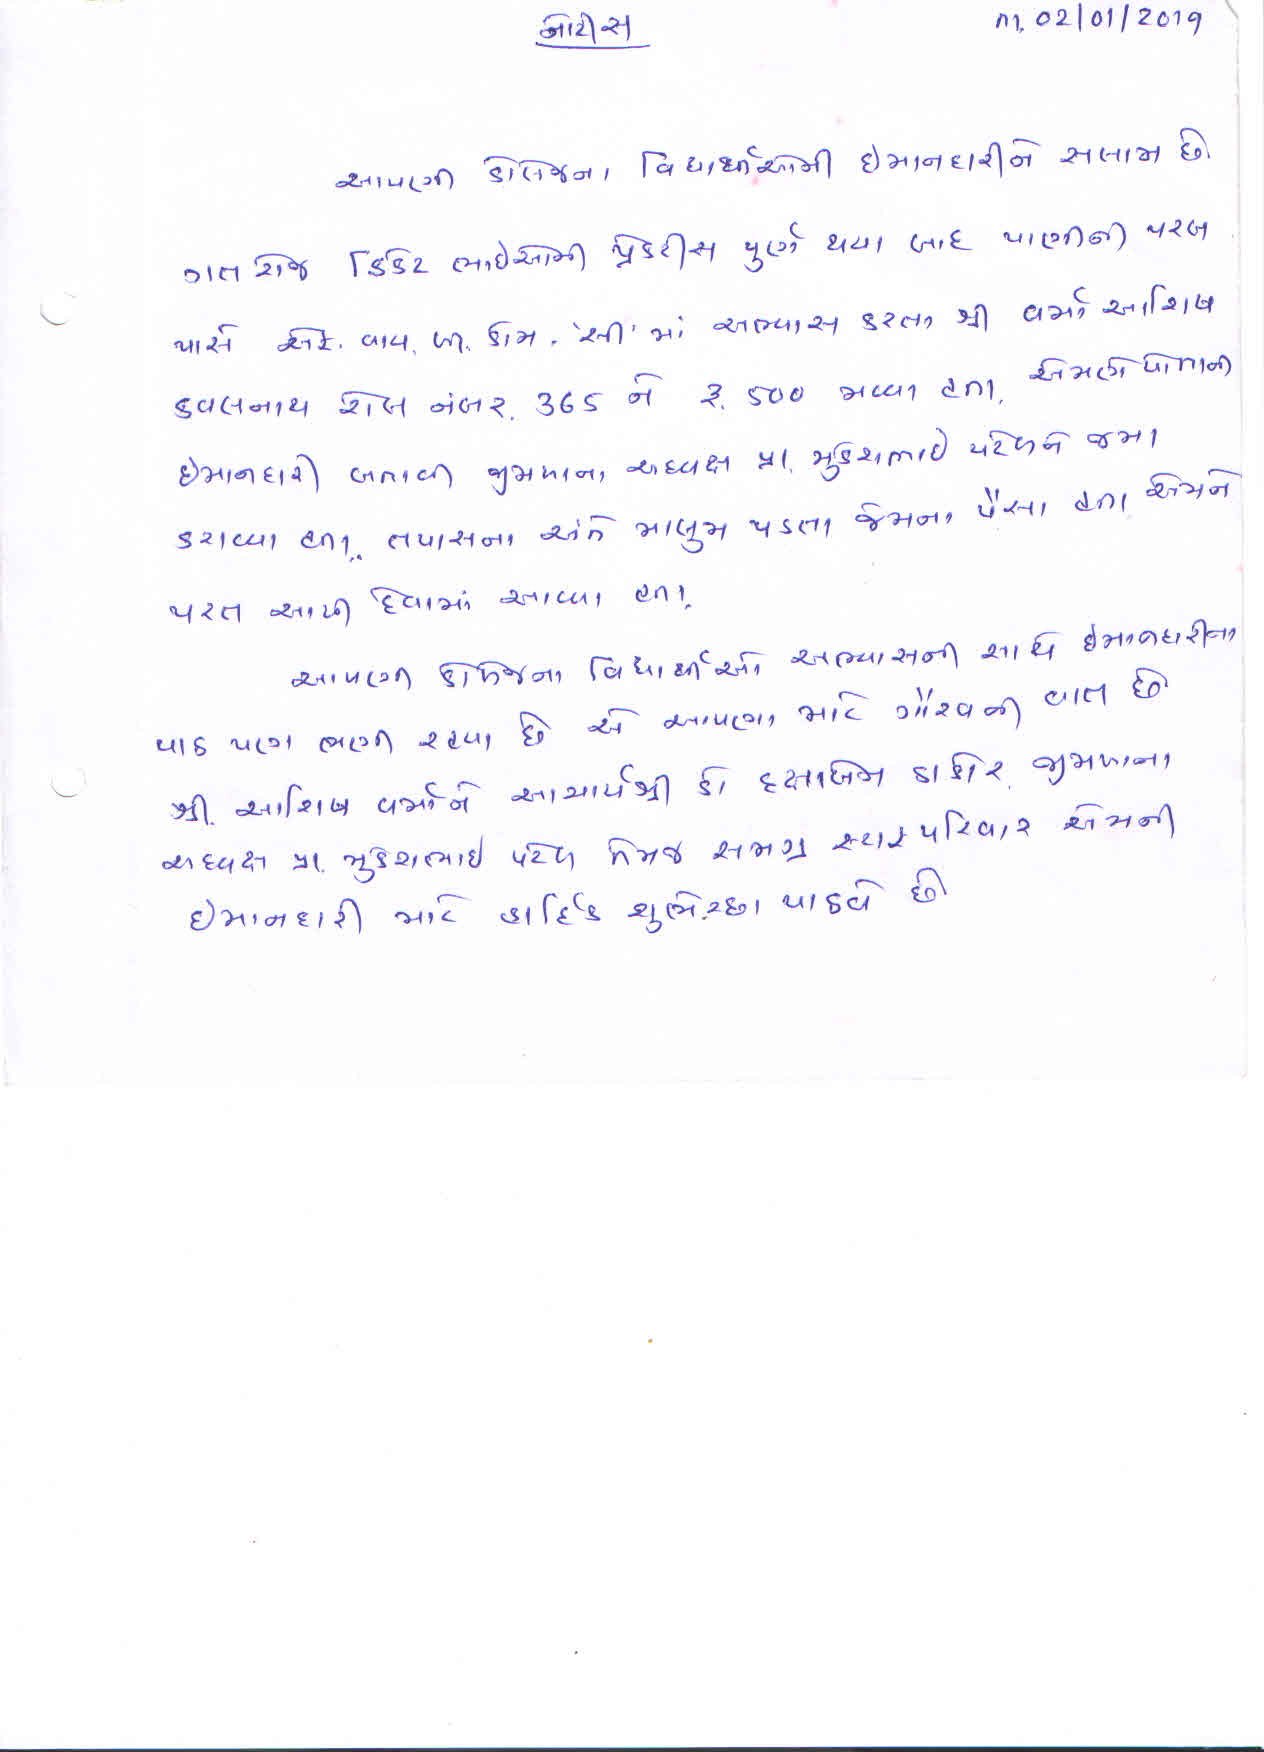 નોટીસ
તા. 02/01/2019
આપણી કોલેજના વિદ્યાર્થીઓની ઈમાનદારીને સલામ છે.
ગત રોજ ક્રિકેટ ભાઈઓની પ્રેકટીસ પુર્ણ થયા બાદ પાણીની પરબ
પાસે એફ. વાય. બી. કોમ. 'સી' માં અભ્યાસ કરતા શ્રી વર્મા આશિષ
કવલનાથ રોલ નંબર. 365 ને રૂ. 500 મળ્યા હતા. એમણે પોતાની
ઈમાનદારી બતાવી જીમખાના અધ્યક્ષ પ્રા. મુકેશભાઈ પટેલને જમા
કરાવ્યા હતા. તપાસના અંતે માલુમ પડતા જેમના પૈસા હતા એમને
પરત આપી દેવામાં આવ્યા હતા.
આપણી કોલેજના વિદ્યાર્થીઓ અભ્યાસની સાથે ઈમાનદારીના
પાઠ પણ ભણી રહ્યા છે એ આપણા માટે ગૌરવની વાત છે
શ્રી. આશિષ વર્માને આચાર્યશ્રી ડૉ દક્ષાબેન ઠાકોર, જીમખાના
અધ્યક્ષ પ્રા. મુકેશભાઈ પટેલ તેમજ સમગ્ર સ્ટાફ પરિવાર એમની
ઈમાનદારી માટે હાર્દિક શુભેચ્છા પાઠવે છે